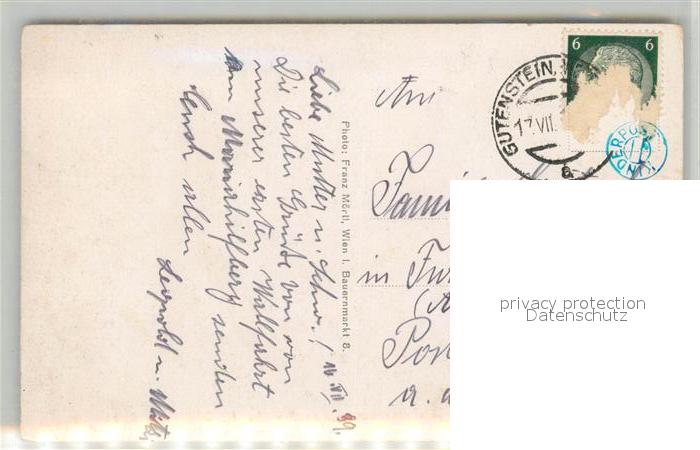 Liebe Mutter u. Schw.!
16. VII. 39.
Die besten Grüße von
unserer ersten Wallfahrt
am Mariahilfberg senden
Euch allen
Leopold u. Mitzi
Photo: Franz Mörtl, Wien I. Bauernmarkt 8.
An
Fami
in
Pos
a. d
GUTENSTEIN
17.VII.
a
6 6
KINDERPOST
privacy protection
Datenschutz